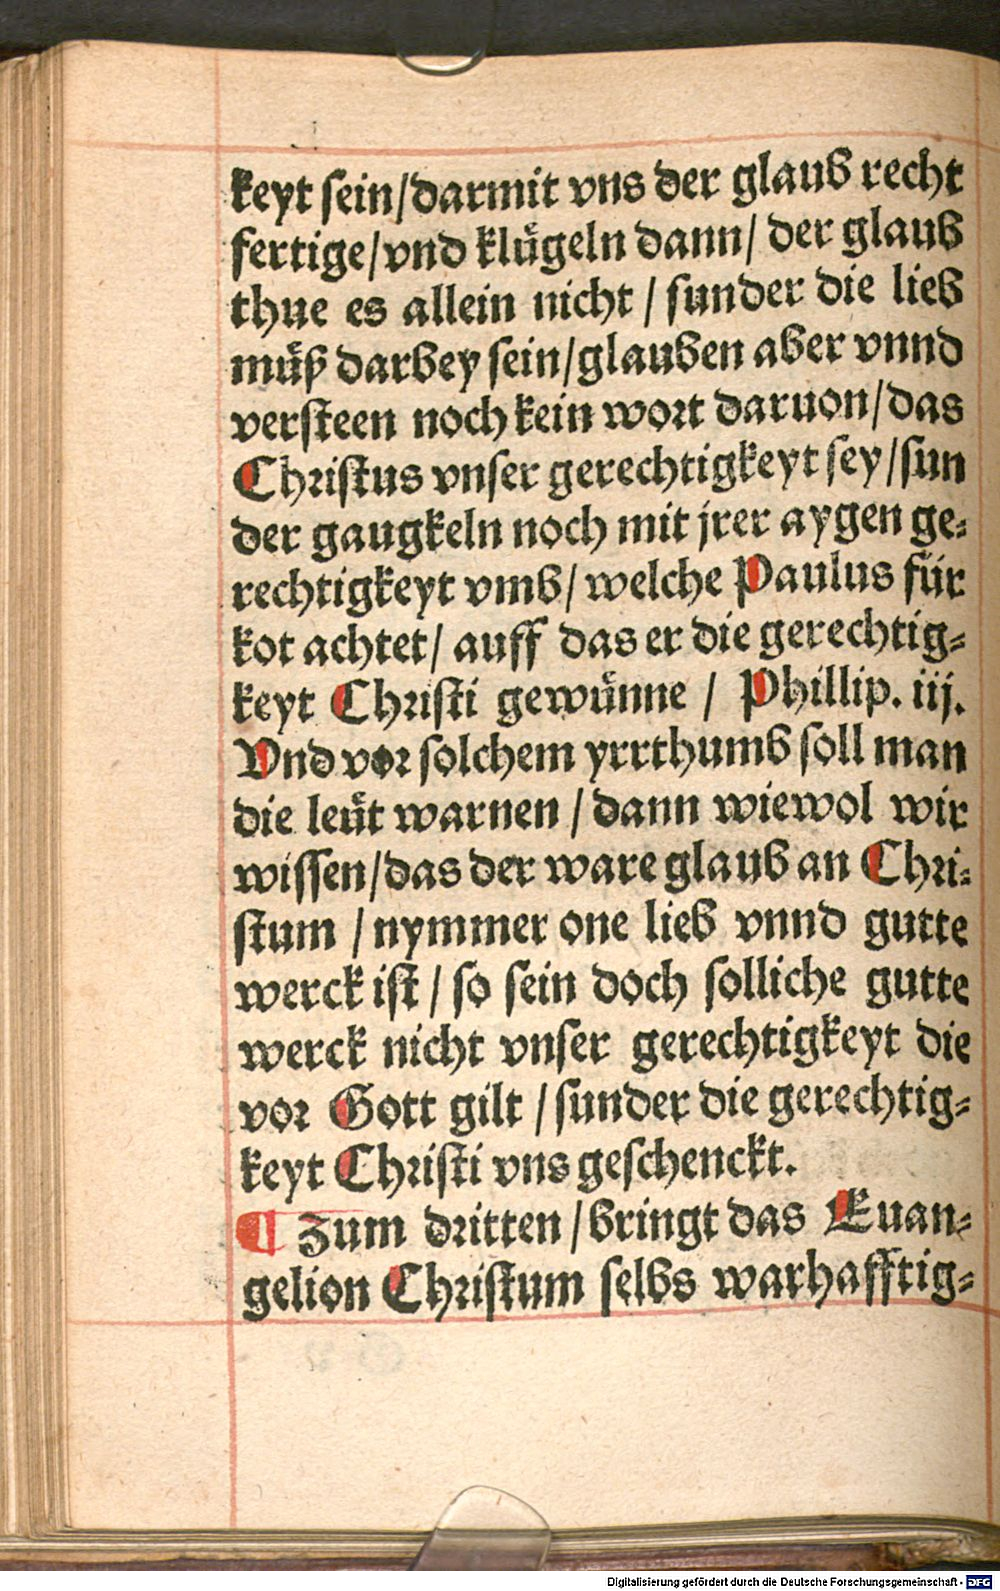 keyt sein/darmit vns der glaub recht
fertige/vnd klůgeln dann/ der glaub
thue es allein nicht / sunder die lieb
můß darbey sein/glauben aber vnnd
versteen noch kein wort daruon/das
Christus vnser gerechtigkeyt sey/sun
der gaugkeln noch mit jrer aygen ge⸗
rechtigkeyt vmb/ welche Paulus für
kot achtet/ auff das er die gerechtig⸗
keyt Christi gewünne / Phillip. iij.
Vnd vor solchem yrrthumb soll man
die leüt warnen / dann wiewol wir
wissen/das der ware glaub an Chri⸗
stum / nymmer one lieb vnnd gutte
werck ist / so sein doch solliche gutte
werck nicht vnser gerechtigkeyt die
vor Gott gilt / sunder die gerechtig⸗
keyt Christi vns geschenckt.
¶ Zum dritten / bringt das Euan⸗
gelion Christum selbs warhafftig⸗
Digitalisierung gefördert durch die Deutsche Forschungsgemeinschaft - DFG